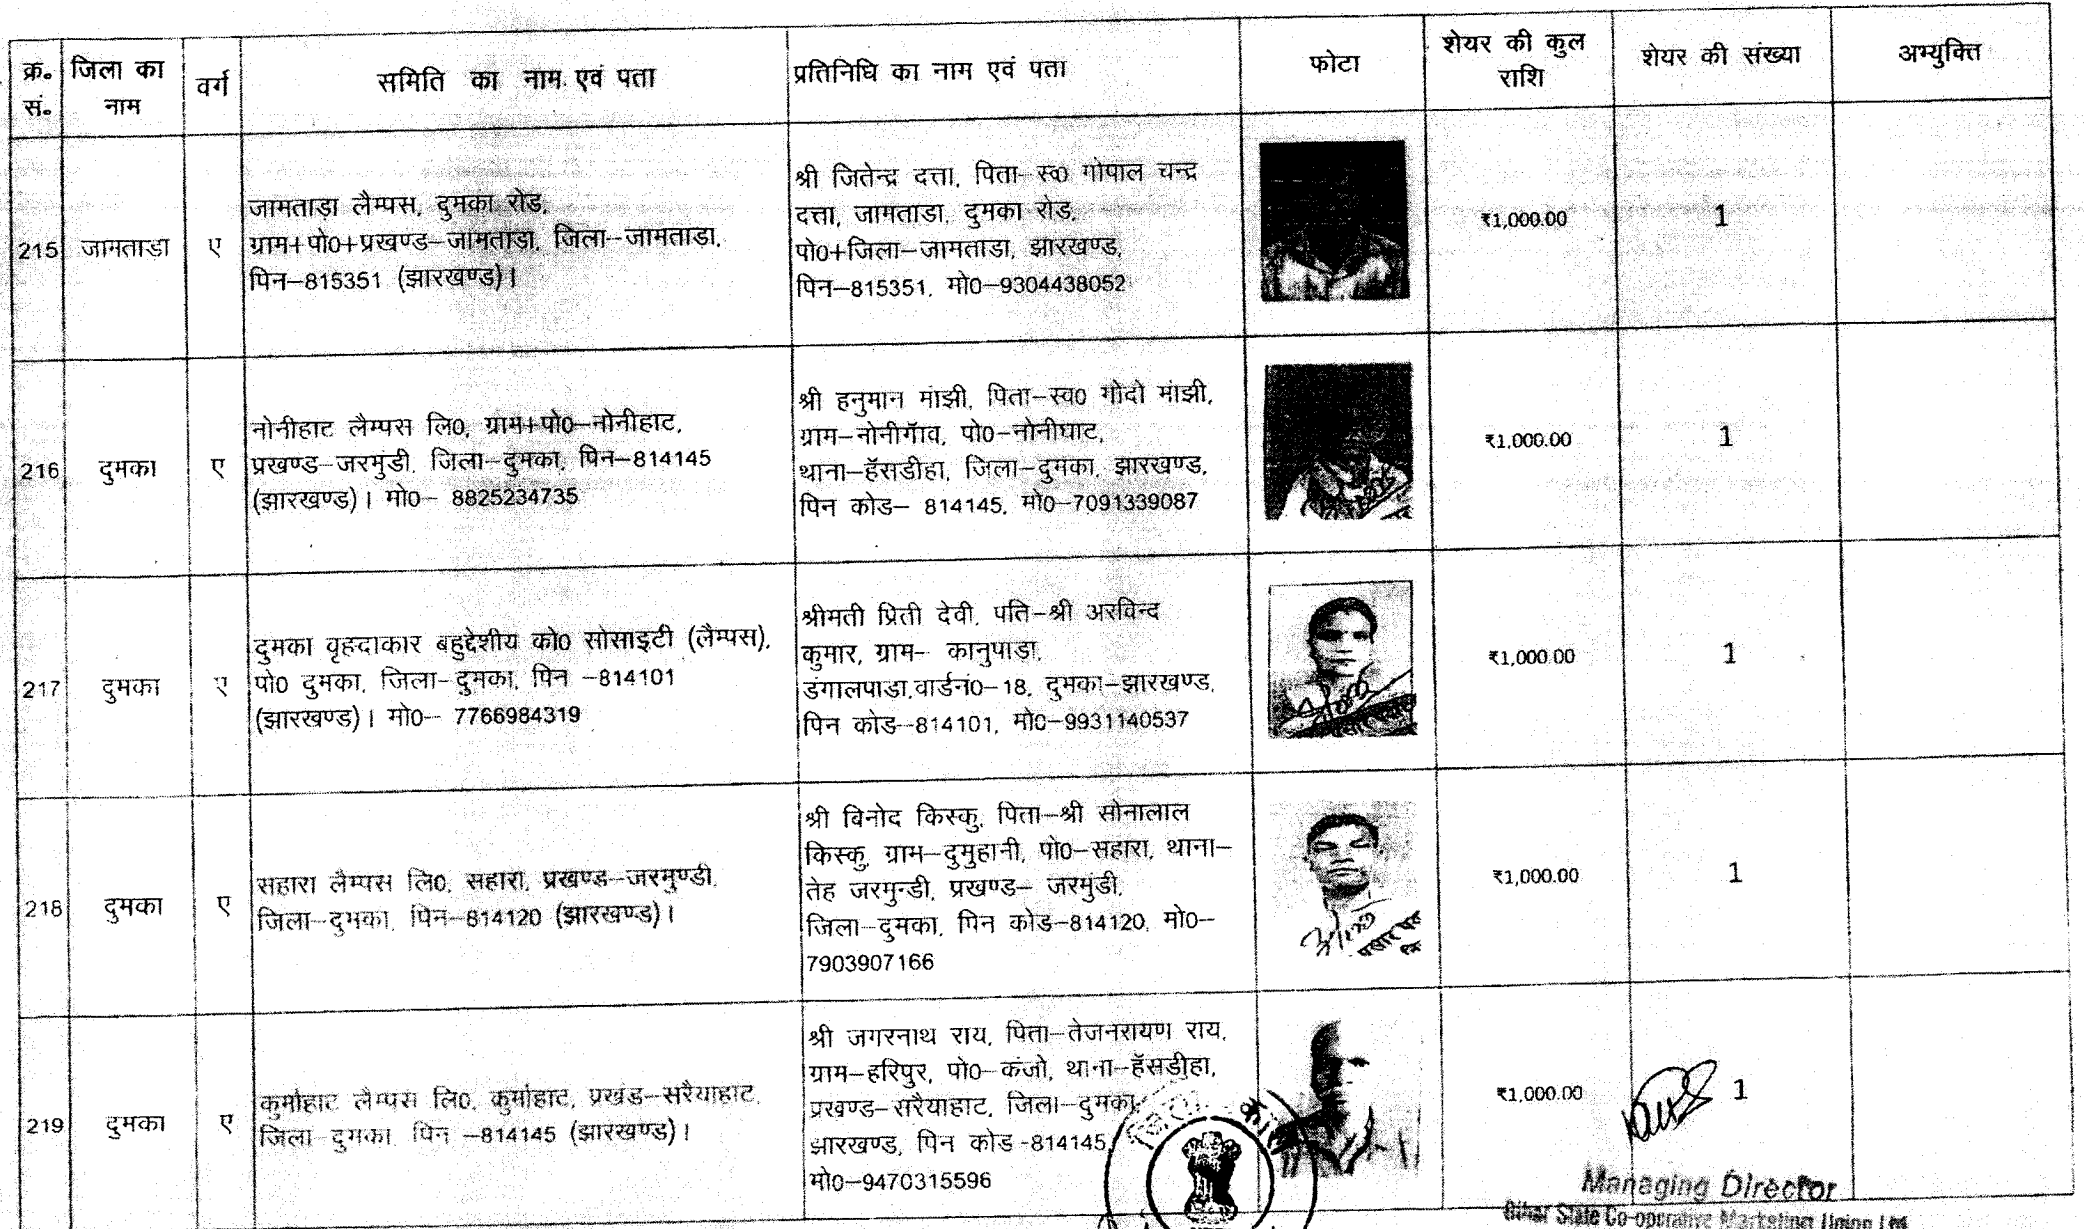 क्र. सं. जिला का नाम वर्ग समिति का नाम एवं पता प्रतिनिधि का नाम एवं पता फोटा शेयर की कुल राशि शेयर की संख्या अभ्युक्ति
215 जामताडा ए
जामताडा लैम्पस, दुमका रोड,
ग्राम+पो0+प्रखण्ड–जामताडा, जिला–जामताडा,
पिन–815351 (झारखण्ड)।
श्री जितेन्द्र दत्ता, पिता–स्व0 गोपाल चन्द्र
दत्ता, जामताडा, दुमका रोड,
पो0+जिला–जामताडा, झारखण्ड,
पिन–815351, मो0–9304438052
₹1,000.00 1
216 दुमका ए
नोनीहाट लैम्पस लि0, ग्राम+पो0–नोनीहाट,
प्रखण्ड–जरमुंडी, जिला–दुमका, पिन–814145
(झारखण्ड)। मो0– 8825234735
श्री हनुमान मांझी, पिता–स्व0 गोदो मांझी,
ग्राम–नोनीगॅाव, पो0–नोनीघाट,
थाना–हॅसडीहा, जिला–दुमका, झारखण्ड,
पिन कोड– 814145, मो0–7091339087
₹1,000.00 1
217 दुमका ए
दुमका वृहदाकार बहुद्देशीय को0 सोसाइटी (लैम्पस),
पो0 दुमका, जिला–दुमका, पिन –814101
(झारखण्ड)। मो0– 7766984319
श्रीमती प्रिती देवी, पति–श्री अरविन्द
कुमार, ग्राम– कानुपाडा,
डंगालपाडा,वार्डनं0–18, दुमका–झारखण्ड,
पिन कोड–814101, मो0–9931140537
₹1,000.00 1
218 दुमका ए
सहारा लैम्पस लि0, सहारा, प्रखण्ड–जरमुण्डी,
जिला–दुमका, पिन–814120 (झारखण्ड)।
श्री बिनोद किस्कु, पिता–श्री सोनालाल
किस्कु, ग्राम–दुमुहानी, पो0–सहारा, थाना–
तेह जरमुन्डी, प्रखण्ड– जरमुंडी,
जिला–दुमका, पिन कोड–814120, मो0–
7903907166
₹1,000.00 1
219 दुमका ए
कुर्माहाट लैम्पस लि0, कुर्माहाट, प्रखंड–सरैयाहाट,
जिला–दुमका, पिन –814145 (झारखण्ड)।
श्री जगरनाथ राय, पिता–तेजनरायण राय,
ग्राम–हरिपुर, पो0–कंजो, थाना–हॅसडीहा,
प्रखण्ड–सरैयाहाट, जिला–दुमका,
झारखण्ड, पिन कोड -814145,
मो0–9470315596
₹1,000.00 1
Managing Director
Bihar State Co-operative Marketing Union Ltd.